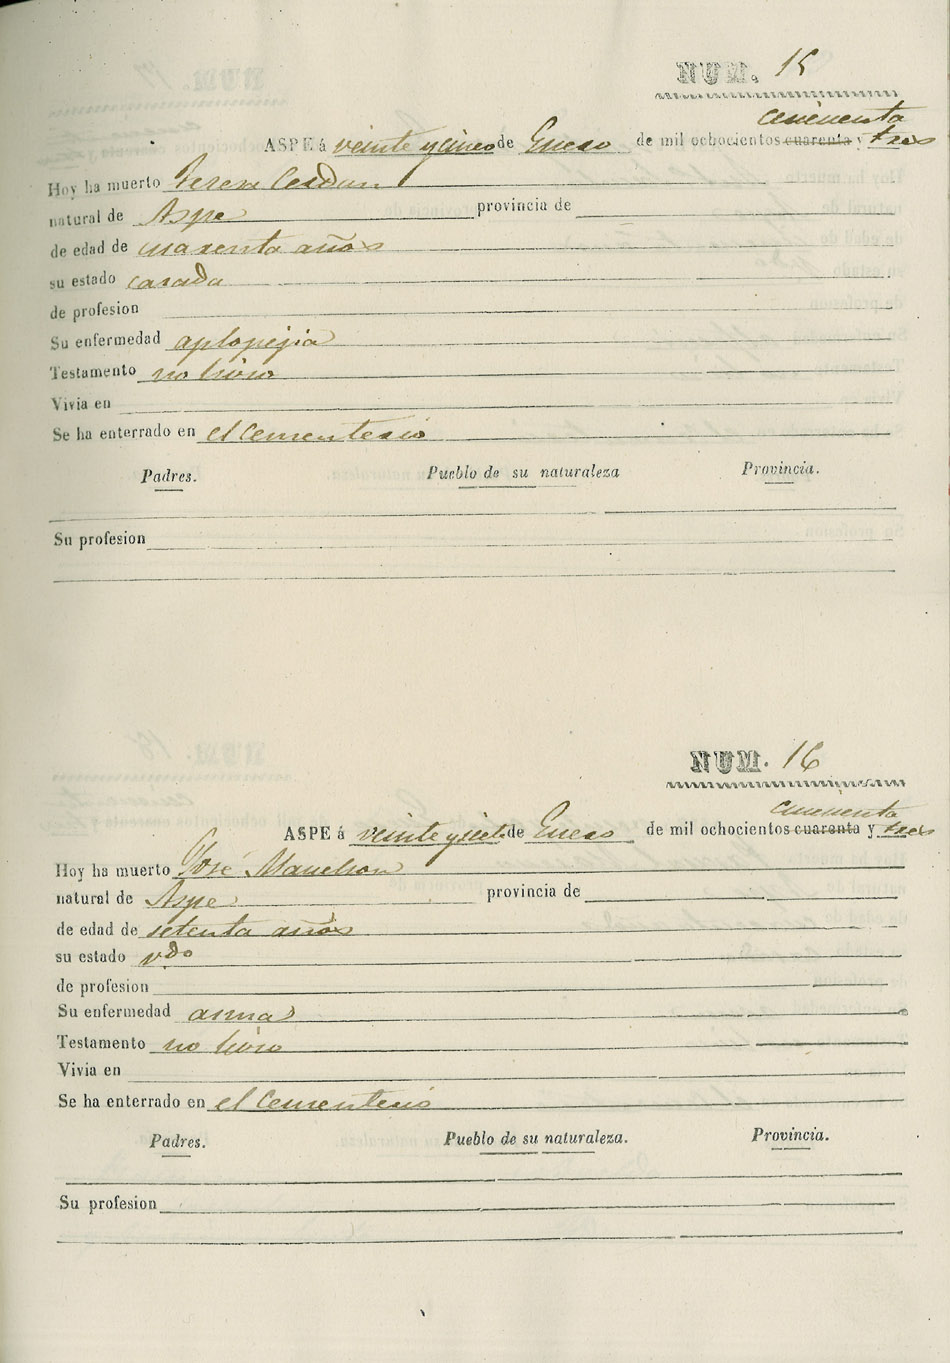 NUM. 15
cincuenta
ASPE á veinte y cinco de Enero de mil ochocientos cuarenta y tres
Hoy ha muerto Teresa Cerdan
natural de Aspe provincia de
de edad de cuarenta años
su estado casada
de profesion
Su enfermedad aplopejia
Testamento no hizo
Vivia en
Se ha enterrado en el Cementerio
Padres. Pueblo de su naturaleza Provincia.
Su profesion
NUM. 16
cincuenta
ASPE á veinte y siete de Enero de mil ochocientos cuarenta y tres
Hoy ha muerto José Manchon
natural de Aspe provincia de
de edad de setenta años
su estado vdo
de profesion
Su enfermedad asma
Testamento no hizo
Vivia en
Se ha enterrado en el Cementerio
Padres. Pueblo de su naturaleza. Provincia.
Su profesion